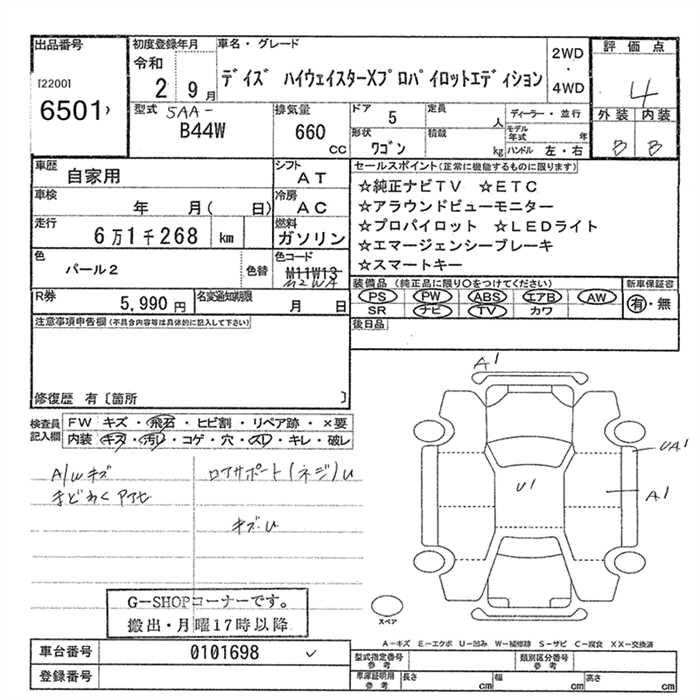 出品番号 初度登録年月 車名・グレード 2WD・4WD 評価点
[2200] 令和 2 9月 デイズ ハイウェイスターXプロパイロットエディション 4
6501
型式 5AA- 排気量 ドア 5 定員 人 ディーラー・並行 外装 内装
B44W 660 CC 形状 ワゴン 積載 kg モデル年式 年 ハンドル 左・右 B B
車歴 自家用 シフト AT セールスポイント(正常に機能するものに限ります)
車検 年 月( 日) 冷房 AC ☆純正ナビTV ☆ETC
☆アラウンドビューモニター
走行 6万1千268 km 燃料 ガソリン ☆プロパイロット ☆LEDライト
☆エマージェンシーブレーキ
色 パール2 色替 色コード M11W13 ☆スマートキー
装備品(純正品に限り○をつけてください) 新車保証書
R券 5,990円 名変通知期限 月 日 PS PW ABS エアB AW 有・無
SR ナビ TV カワ
注意事項申告欄(不具合内容等は具体的に記入して下さい) 後日品
修復歴 有〔箇所 〕
検査員記入欄 FW キズ・飛石・ヒビ割・リペア跡・×要
内装 キズ・汚レ・コゲ・穴・スレ・キレ・破レ
A/wキズ ロアサポート(ネジ)U
まどわくアセ
キズ・U
A1
UA1
U1
A1
スペア
G-SHOPコーナーです。
搬出・月曜17時以降
A-キズ E-エクボ U-凹み W-補修跡 S-サビ C-腐食 XX-交換済
車台番号 0101698 型式指定番号 参考 類別区分番号 参考
登録番号 車庫証明用 参考 長さ cm 幅 cm 高さ cm